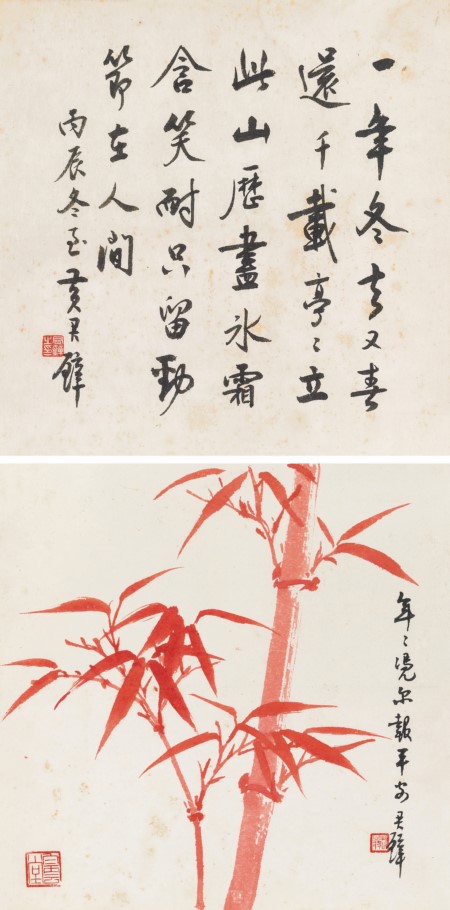 一年冬去又春
還千載亭〻立
此山歷盡氷霜
含笑耐只留勁
節在人間
丙辰冬至黃君璧
年〻憑尔報平安君璧